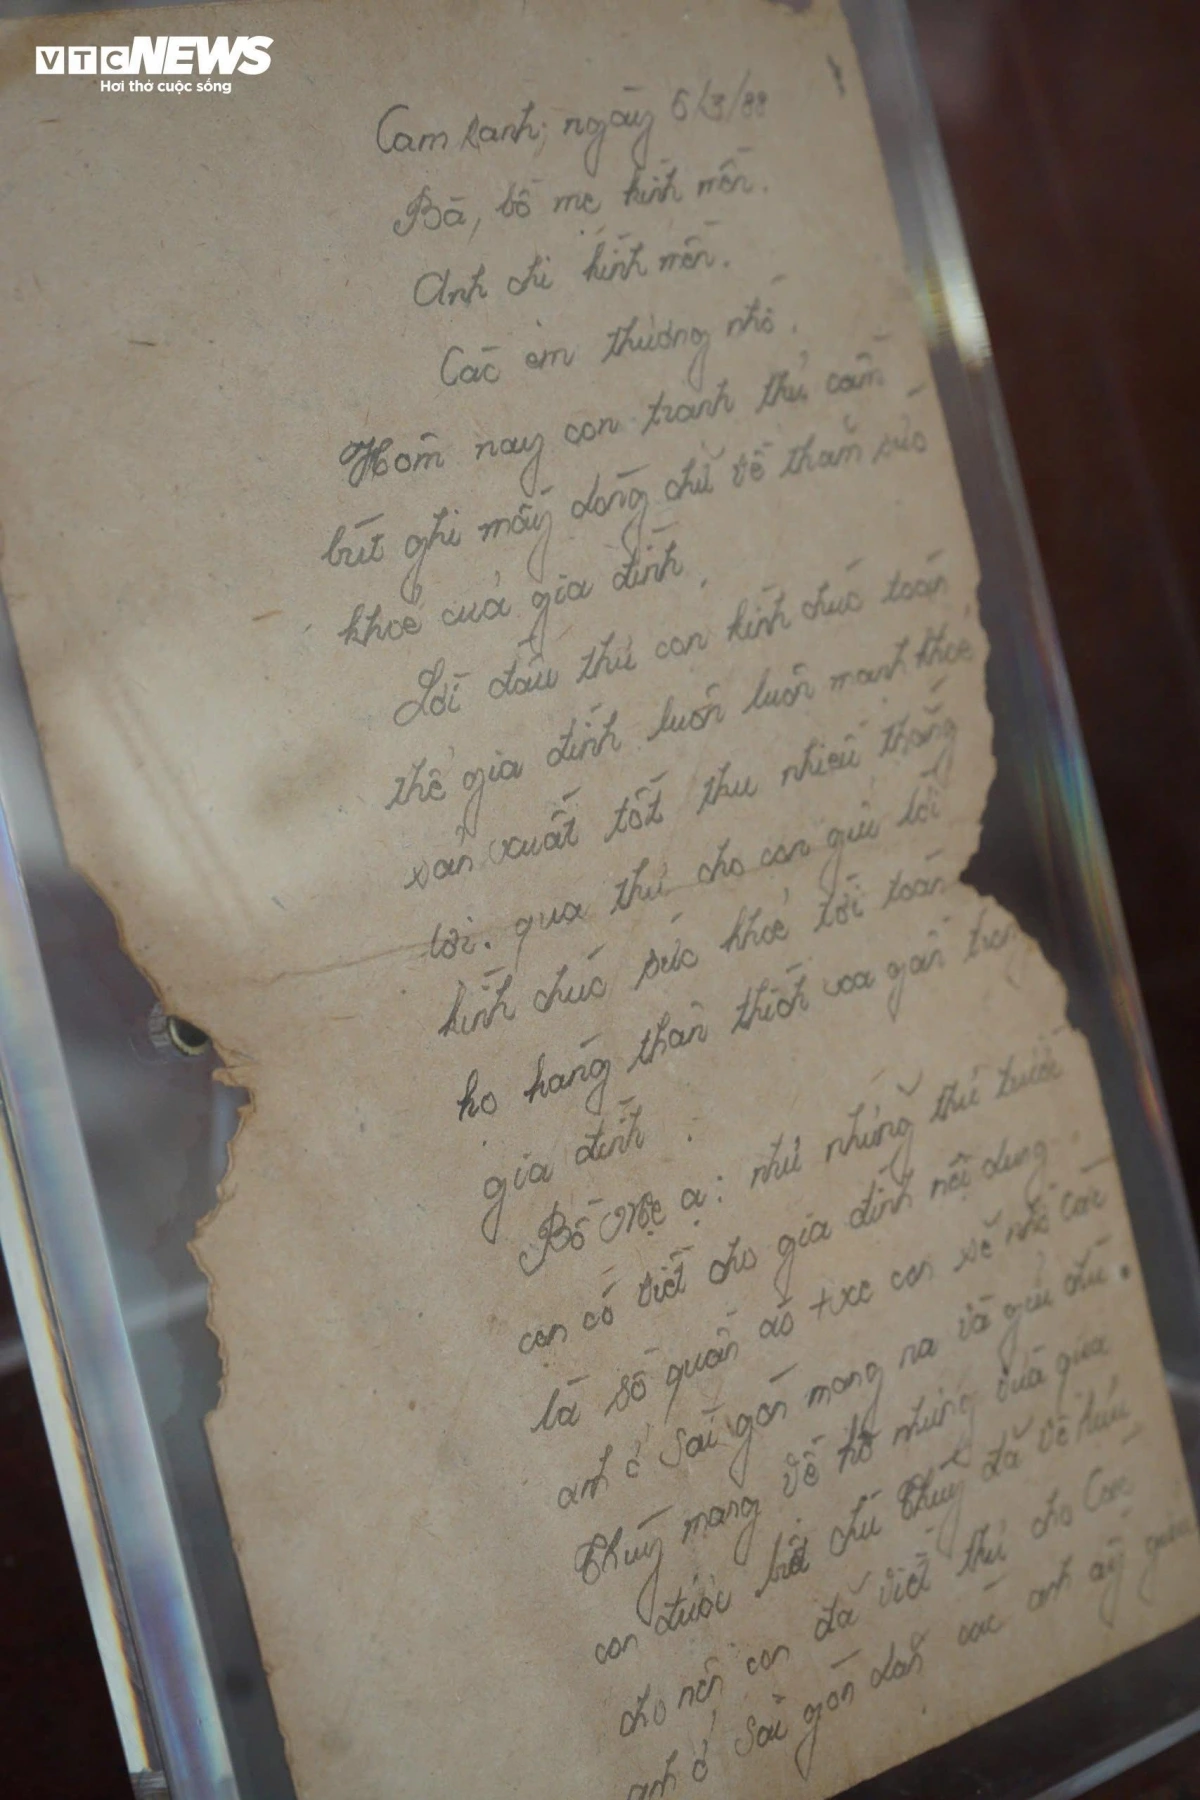 VTC NEWS
Hơi thở cuộc sống
Cam Ranh, ngày 6/3/88
Bà, bố mẹ kính mến.
Anh chị kính mến.
Các em thương nhớ.
Hôm nay con tranh thủ cầm
bút ghi mấy dòng chữ về thăm sức
khoẻ của gia đình.
Lời đầu thư con kính chúc toàn
thể gia đình luôn luôn mạnh khoẻ
sản xuất tốt thu nhiều thắng
lợi. qua thư cho con gửi lời
kính chúc sức khoẻ tới toàn
họ hàng thân thích xa gần trong
gia đình.
Bố Mẹ ạ: như những thư trước
con có viết cho gia đình nội dung
là số quần áo + xe con sẽ nhờ các
anh ở Sài gòn mang ra và gửi chú
Thuỷ mang về hộ nhưng vừa qua
con được biết chú Thuỷ đã về hưu
cho nên con đã viết thư cho Các
anh ở Sài gòn dặn các anh ấy